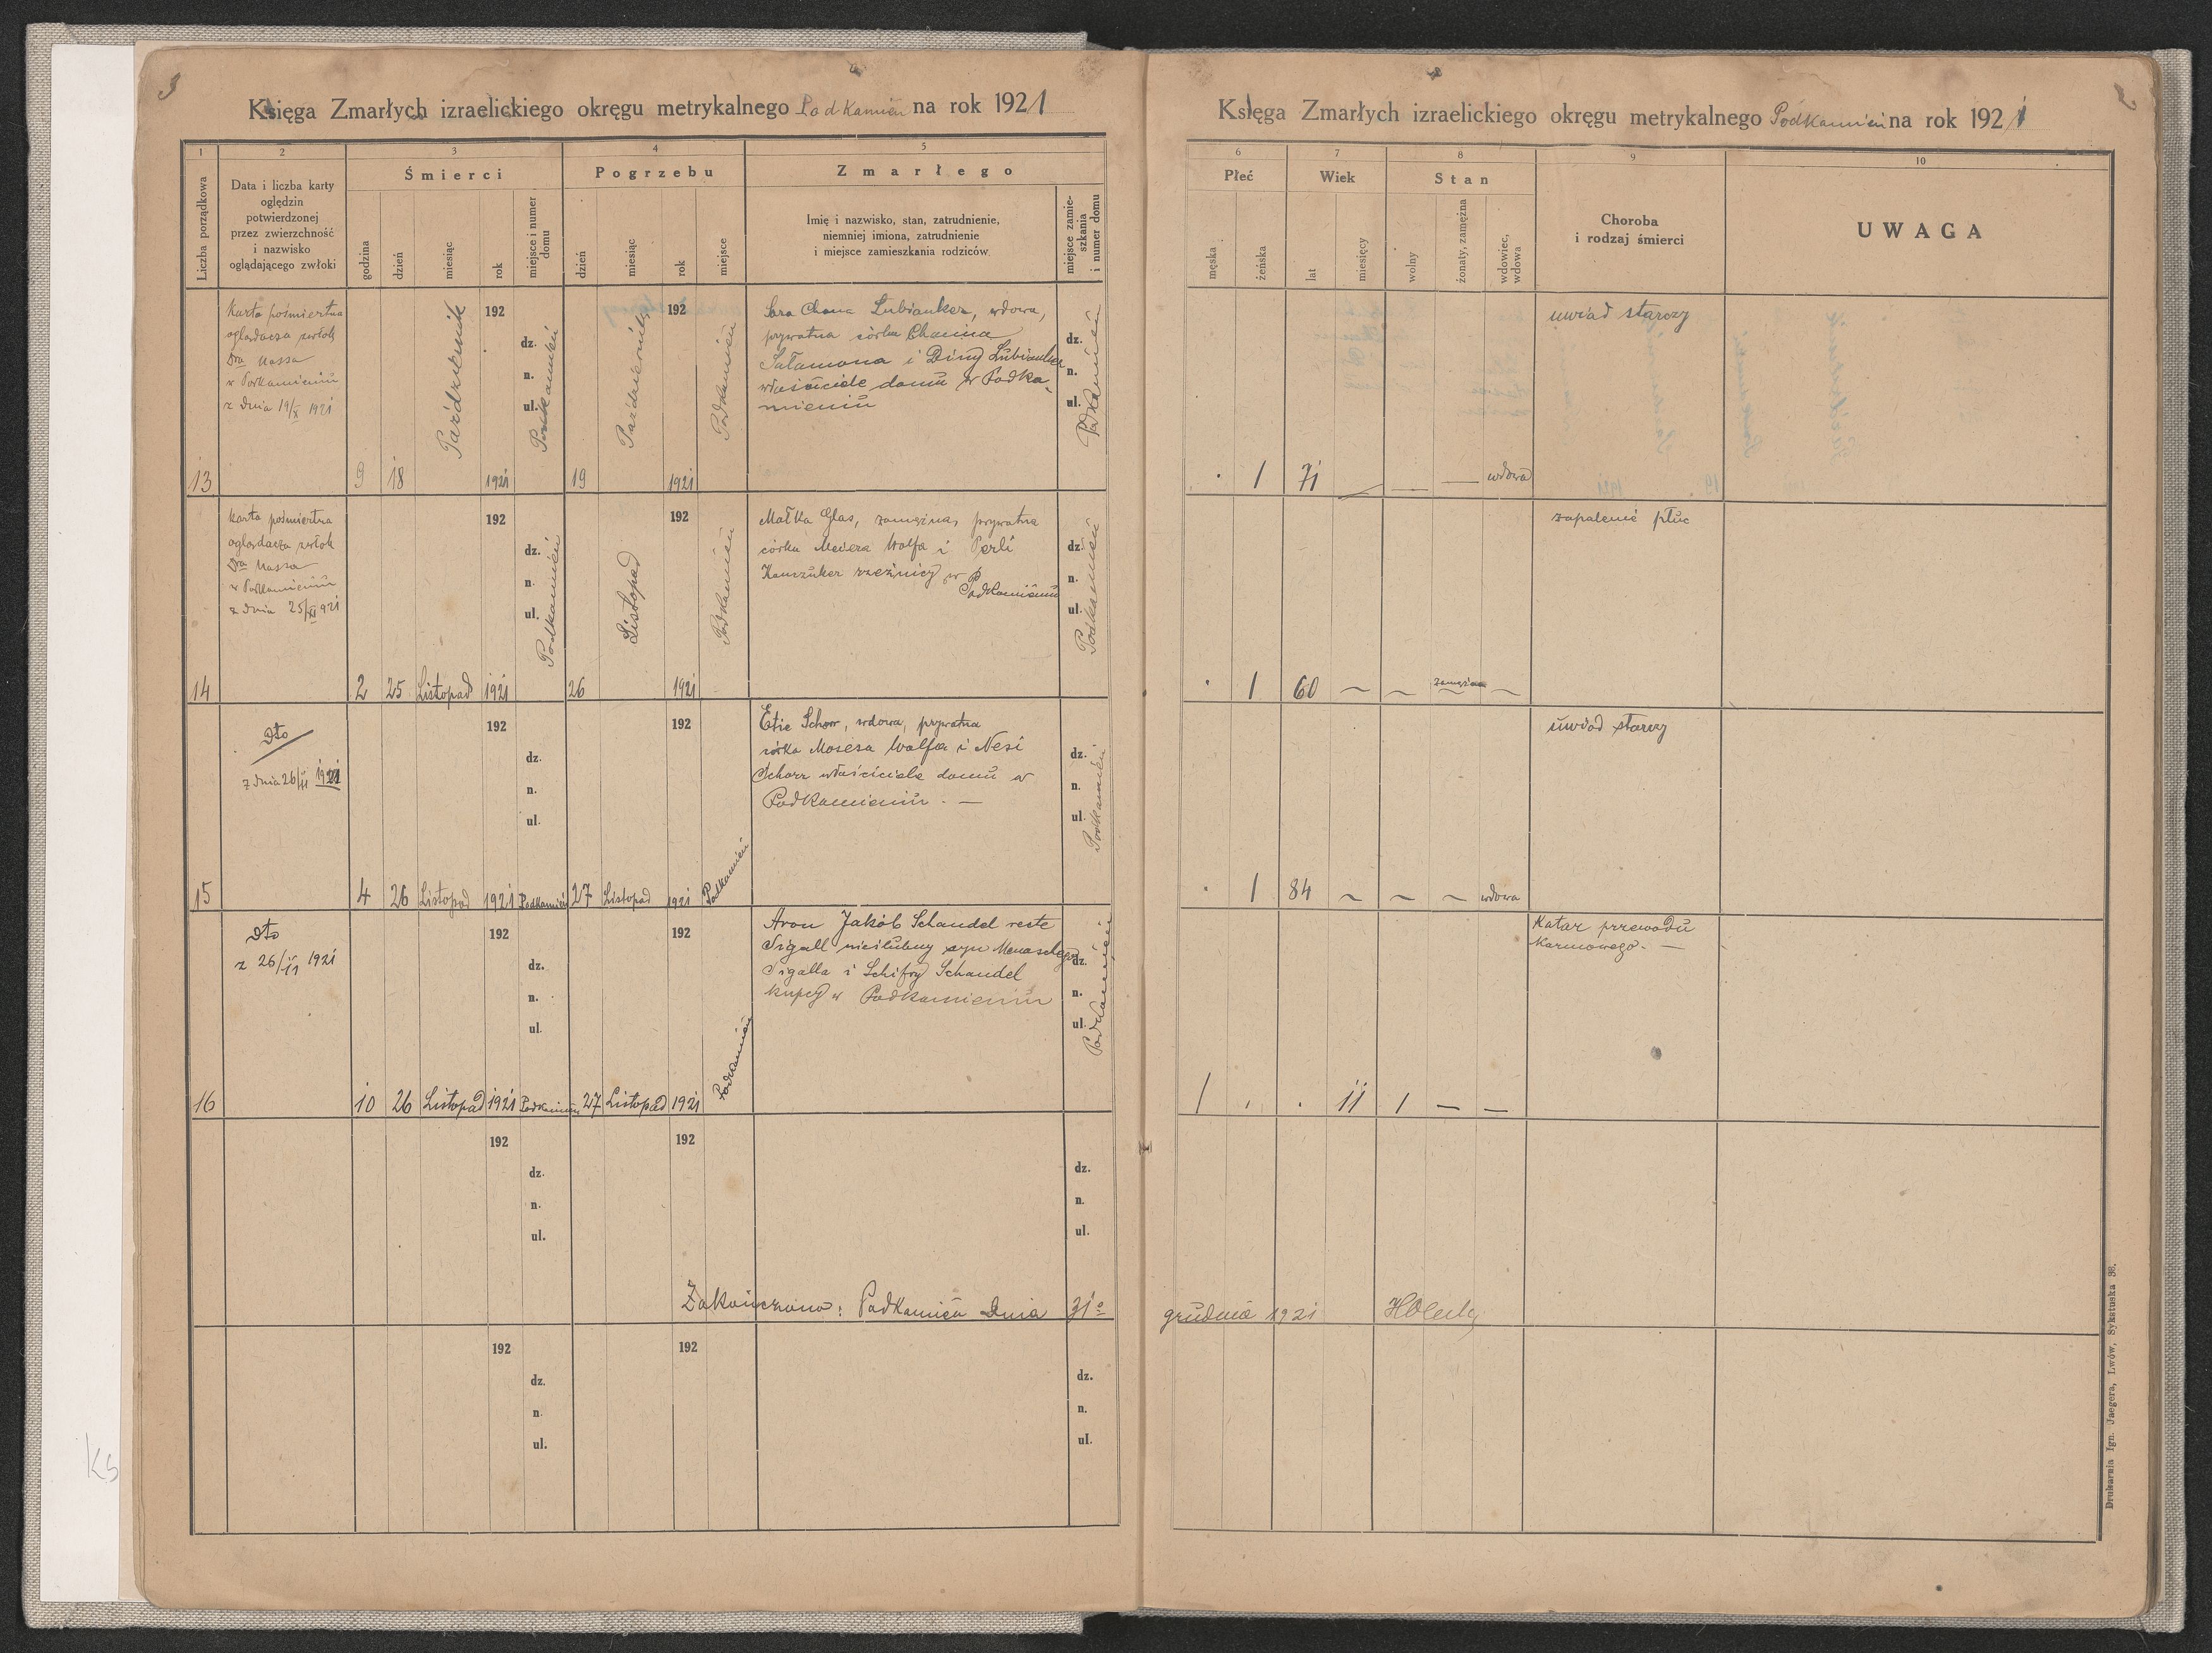 3
Księga Zmarłych izraelickiego okręgu metrykalnego Podkamień na rok 1921
1 2 3 4 5
Liczba porządkowa
Data i liczba karty
oględzin
potwierdzonej
przez zwierzchność
i nazwisko
oglądającego zwłoki
Śmierci
godzina
dzień
miesiąc
rok
miejsce i numer
domu
Pogrzebu
dzień
miesiąc
rok
miejsce
Zmarłego
Imię i nazwisko, stan, zatrudnienie,
niemniej imiona, zatrudnienie
i miejsce zamieszkania rodziców.
miejsce zamie-
szkania
i numer domu
13
Karta pośmiertna
oglądacza zwłok
Dra Nassa
w Podkamieniu
z dnia 19/X 1921
9 18 Październik 192 1921
dz.
n.
ul.
Podkamień
19 Październik 192 1921 Podkamień
Sara Chana Lubianker, wdowa,
prywatna córka Chaima
Salamona i Diny Lubianker
właściciele domu w Podka-
mieniu
dz.
n.
ul.
Podkamień
14
Karta pośmiertna
oglądacza zwłok
Dra Nassa
w Podkamieniu
z dnia 25/XI 921
2 25 Listopad 192 1921
dz.
n.
ul.
Podkamień
26 Listopad 192 1921 Podkamień
Małka Glas, zamężna, prywatna
córka Meiera Wolfa i Perli
Kanczuker rzeźnicy w
Podkamieniu
dz.
n.
ul.
Podkamień
15
dto
z dnia 26/11 1921
4 26 Listopad 192 1921
dz.
n.
ul.
Podkamień
27 Listopad 192 1921 Podkamień
Etie Schorr, wdowa, prywatna
córka Mosesa Wolfa i Nesi
Schorr właściciele domu w
Podkamieniu. —
dz.
n.
ul.
Podkamień
16
dto
z 26/11 1921
10 26 Listopad 192 1921
dz.
n.
ul.
Podkamień
27 Listopad 192 1921 Podkamień
Aron Jakób Schandel reste
Sigall nieślubny syn Menaschego
Sigalla i Schifry Schandel
kupcy w Podkamieniu
dz.
n.
ul.
Podkamień
192
dz.
n.
ul.
192
dz.
n.
ul.
Zakończono: Podkamień dnia 31o
192
dz.
n.
ul.
192
dz.
n.
ul.
Księga Zmarłych izraelickiego okręgu metrykalnego Podkamień na rok 1921
6 7 8 9 10
Płeć
męska
żeńska
Wiek
lat
miesięcy
Stan
wolny
żonaty, zamężna
wdowiec,
wdowa
Choroba
i rodzaj śmierci
UWAGA
1 71 — — — wdowa
uwiąd starczy
1 60 ~ ~ zamężna ~
zapalenie płuc
1 84 ~ ~ ~ wdowa
uwiąd starczy
1 11 1 — —
Katar przewodu
karmowego. —
grudnia 1921
Drukarnia Ign. Jaegera, Lwów, Sykstuska 36.
Ks